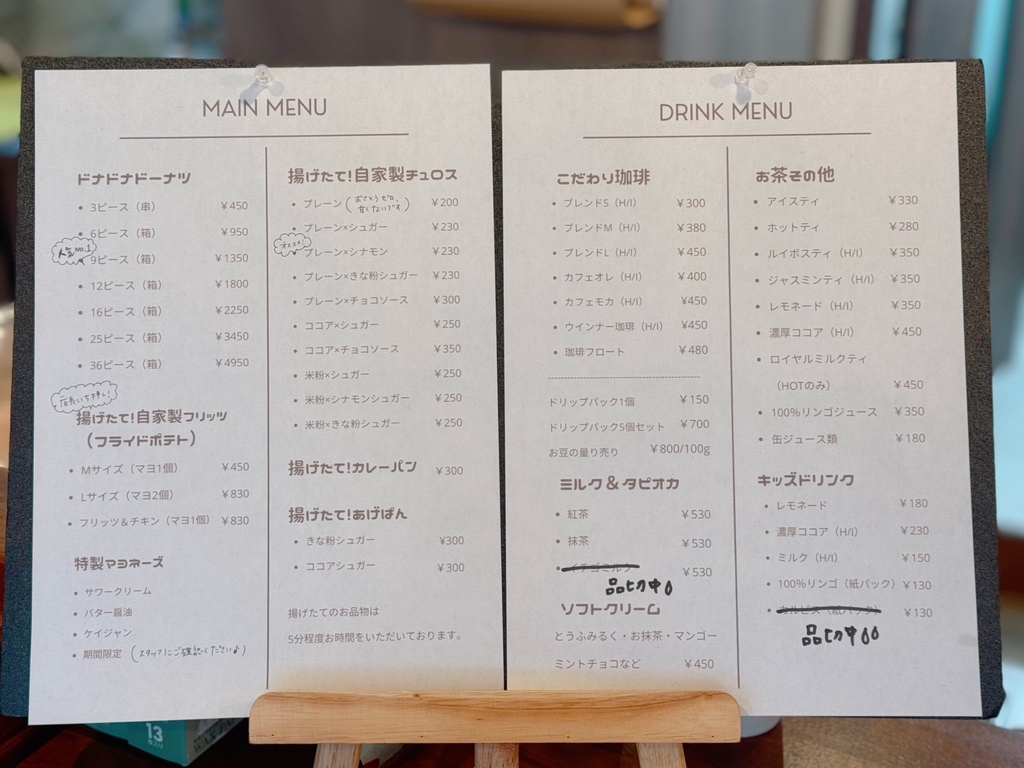 MAIN MENU
ドナドナドーナツ
• 3ピース（串） ￥450
• 6ピース（箱） ￥950
人気NO.1
• 9ピース（箱） ￥1350
• 12ピース（箱） ￥1800
• 16ピース（箱） ￥2250
• 25ピース（箱） ￥3450
• 36ピース（箱） ￥4950
店長いち押し!
揚げたて!自家製フリッツ
（フライドポテト）
• Mサイズ（マヨ1個） ￥450
• Lサイズ（マヨ2個） ￥830
• フリッツ＆チキン（マヨ1個） ￥830
特製マヨネーズ
• サワークリーム
• バター醤油
• ケイジャン
• 期間限定 (スタッフにご確認ください♪)
揚げたて!自家製チュロス
• プレーン (おさとうゼロ、甘くないです) ￥200
• プレーン×シュガー ￥230
オススメ!
• プレーン×シナモン ￥230
• プレーン×きな粉シュガー ￥230
• プレーン×チョコソース ￥300
• ココア×シュガー ￥250
• ココア×チョコソース ￥350
• 米粉×シュガー ￥250
• 米粉×シナモンシュガー ￥250
• 米粉×きな粉シュガー ￥250
揚げたて!カレーパン ￥300
揚げたて!あげぱん
• きな粉シュガー ￥300
• ココアシュガー ￥300
揚げたてのお品物は
5分程度お時間をいただいております。
DRINK MENU
こだわり珈琲
• ブレンドS（H/I） ￥300
• ブレンドM（H/I） ￥380
• ブレンドL（H/I） ￥450
• カフェオレ（H/I） ￥400
• カフェモカ（H/I） ￥450
• ウインナー珈琲（H/I） ￥450
• 珈琲フロート ￥480
ドリップパック1個 ￥150
ドリップパック5個セット ￥700
お豆の量り売り ￥800/100g
ミルク＆タピオカ
• 紅茶 ￥530
• 抹茶 ￥530
• イチゴミルク ￥530
品切中
ソフトクリーム
とうふみるく・お抹茶・マンゴー
ミントチョコなど ￥450
お茶その他
• アイスティ ￥330
• ホットティ ￥280
• ルイボスティ（H/I） ￥350
• ジャスミンティ（H/I） ￥350
• レモネード（H/I） ￥350
• 濃厚ココア（H/I） ￥450
• ロイヤルミルクティ
（HOTのみ） ￥450
• 100％リンゴジュース ￥350
• 缶ジュース類 ￥180
キッズドリンク
• レモネード ￥180
• 濃厚ココア（H/I） ￥230
• ミルク（H/I） ￥150
• 100％リンゴ（紙パック） ￥130
• カルピス（紙パック） ￥130
品切中
13
枚入り